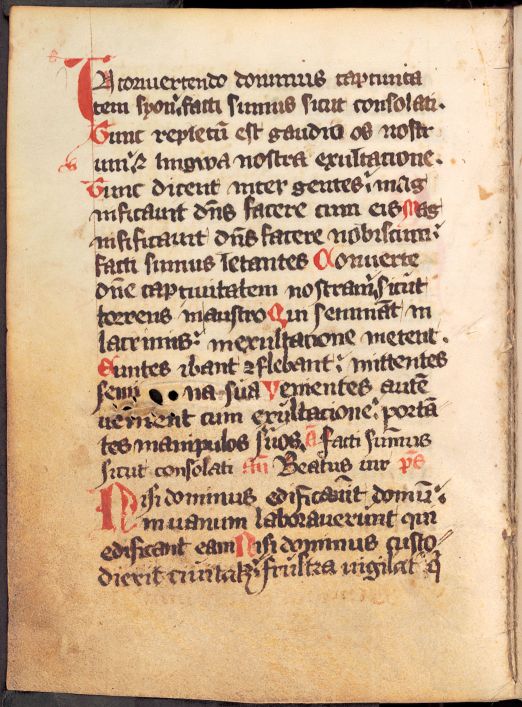 In conuertendo dominus captiuita
tem syon: facti sumus sicut consolati.
Tunc repletū est gaudio os nostr
um: ⁊ lingwa nostra exultacione.
Tunc dicent inter gentes: mag
nificauit dn̄s facere cum eis Mag
nificauit dn̄s facere nobiscum:
facti sumus letantes Conuerte
dn̄e captiuitatem nostram: sicut
torrens in austro Qui semināt in
lacrimis: in exultacione metent.
Euntes ibant ⁊ flebant: mittentes
semi na sua Venientes autē
uenient cum exultacione: portā
tes manipulos suos. a facti sumus
sicut consolati an̄ Beatus uir ps̄
Nisi dominus edificauit domū:
in uanum laborauerunt qui
edificant eam Nisi dominus custo
dierit ciuitatē: frustra uigilat q̄